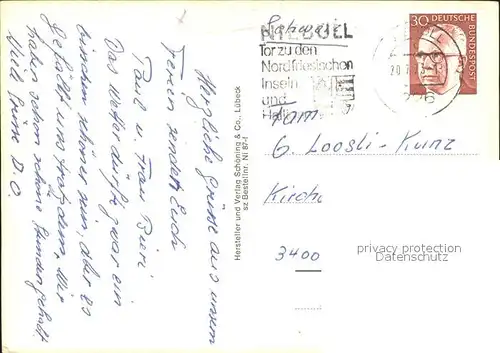 Herzliche Grüsse aus unsern
Ferien sendet Euch
Paul u. Frau Büri
Das Wetter dürfte zwar ein
bisschen schöner sein, aber es
gefällt uns trotzdem. Wir
haben schon schöne Stunden gehabt
Hersteller und Verlag Schöning & Co., Lübeck
sz Bestellnr. NI 87-f
NIEBÜLL
Tor zu den
Nordfriesischen
Inseln
und
30 DEUTSCHE
BUNDESPOST
Fam.
G. Loosli-Kunz
Kirch
3400
privacy protection
Datenschutz